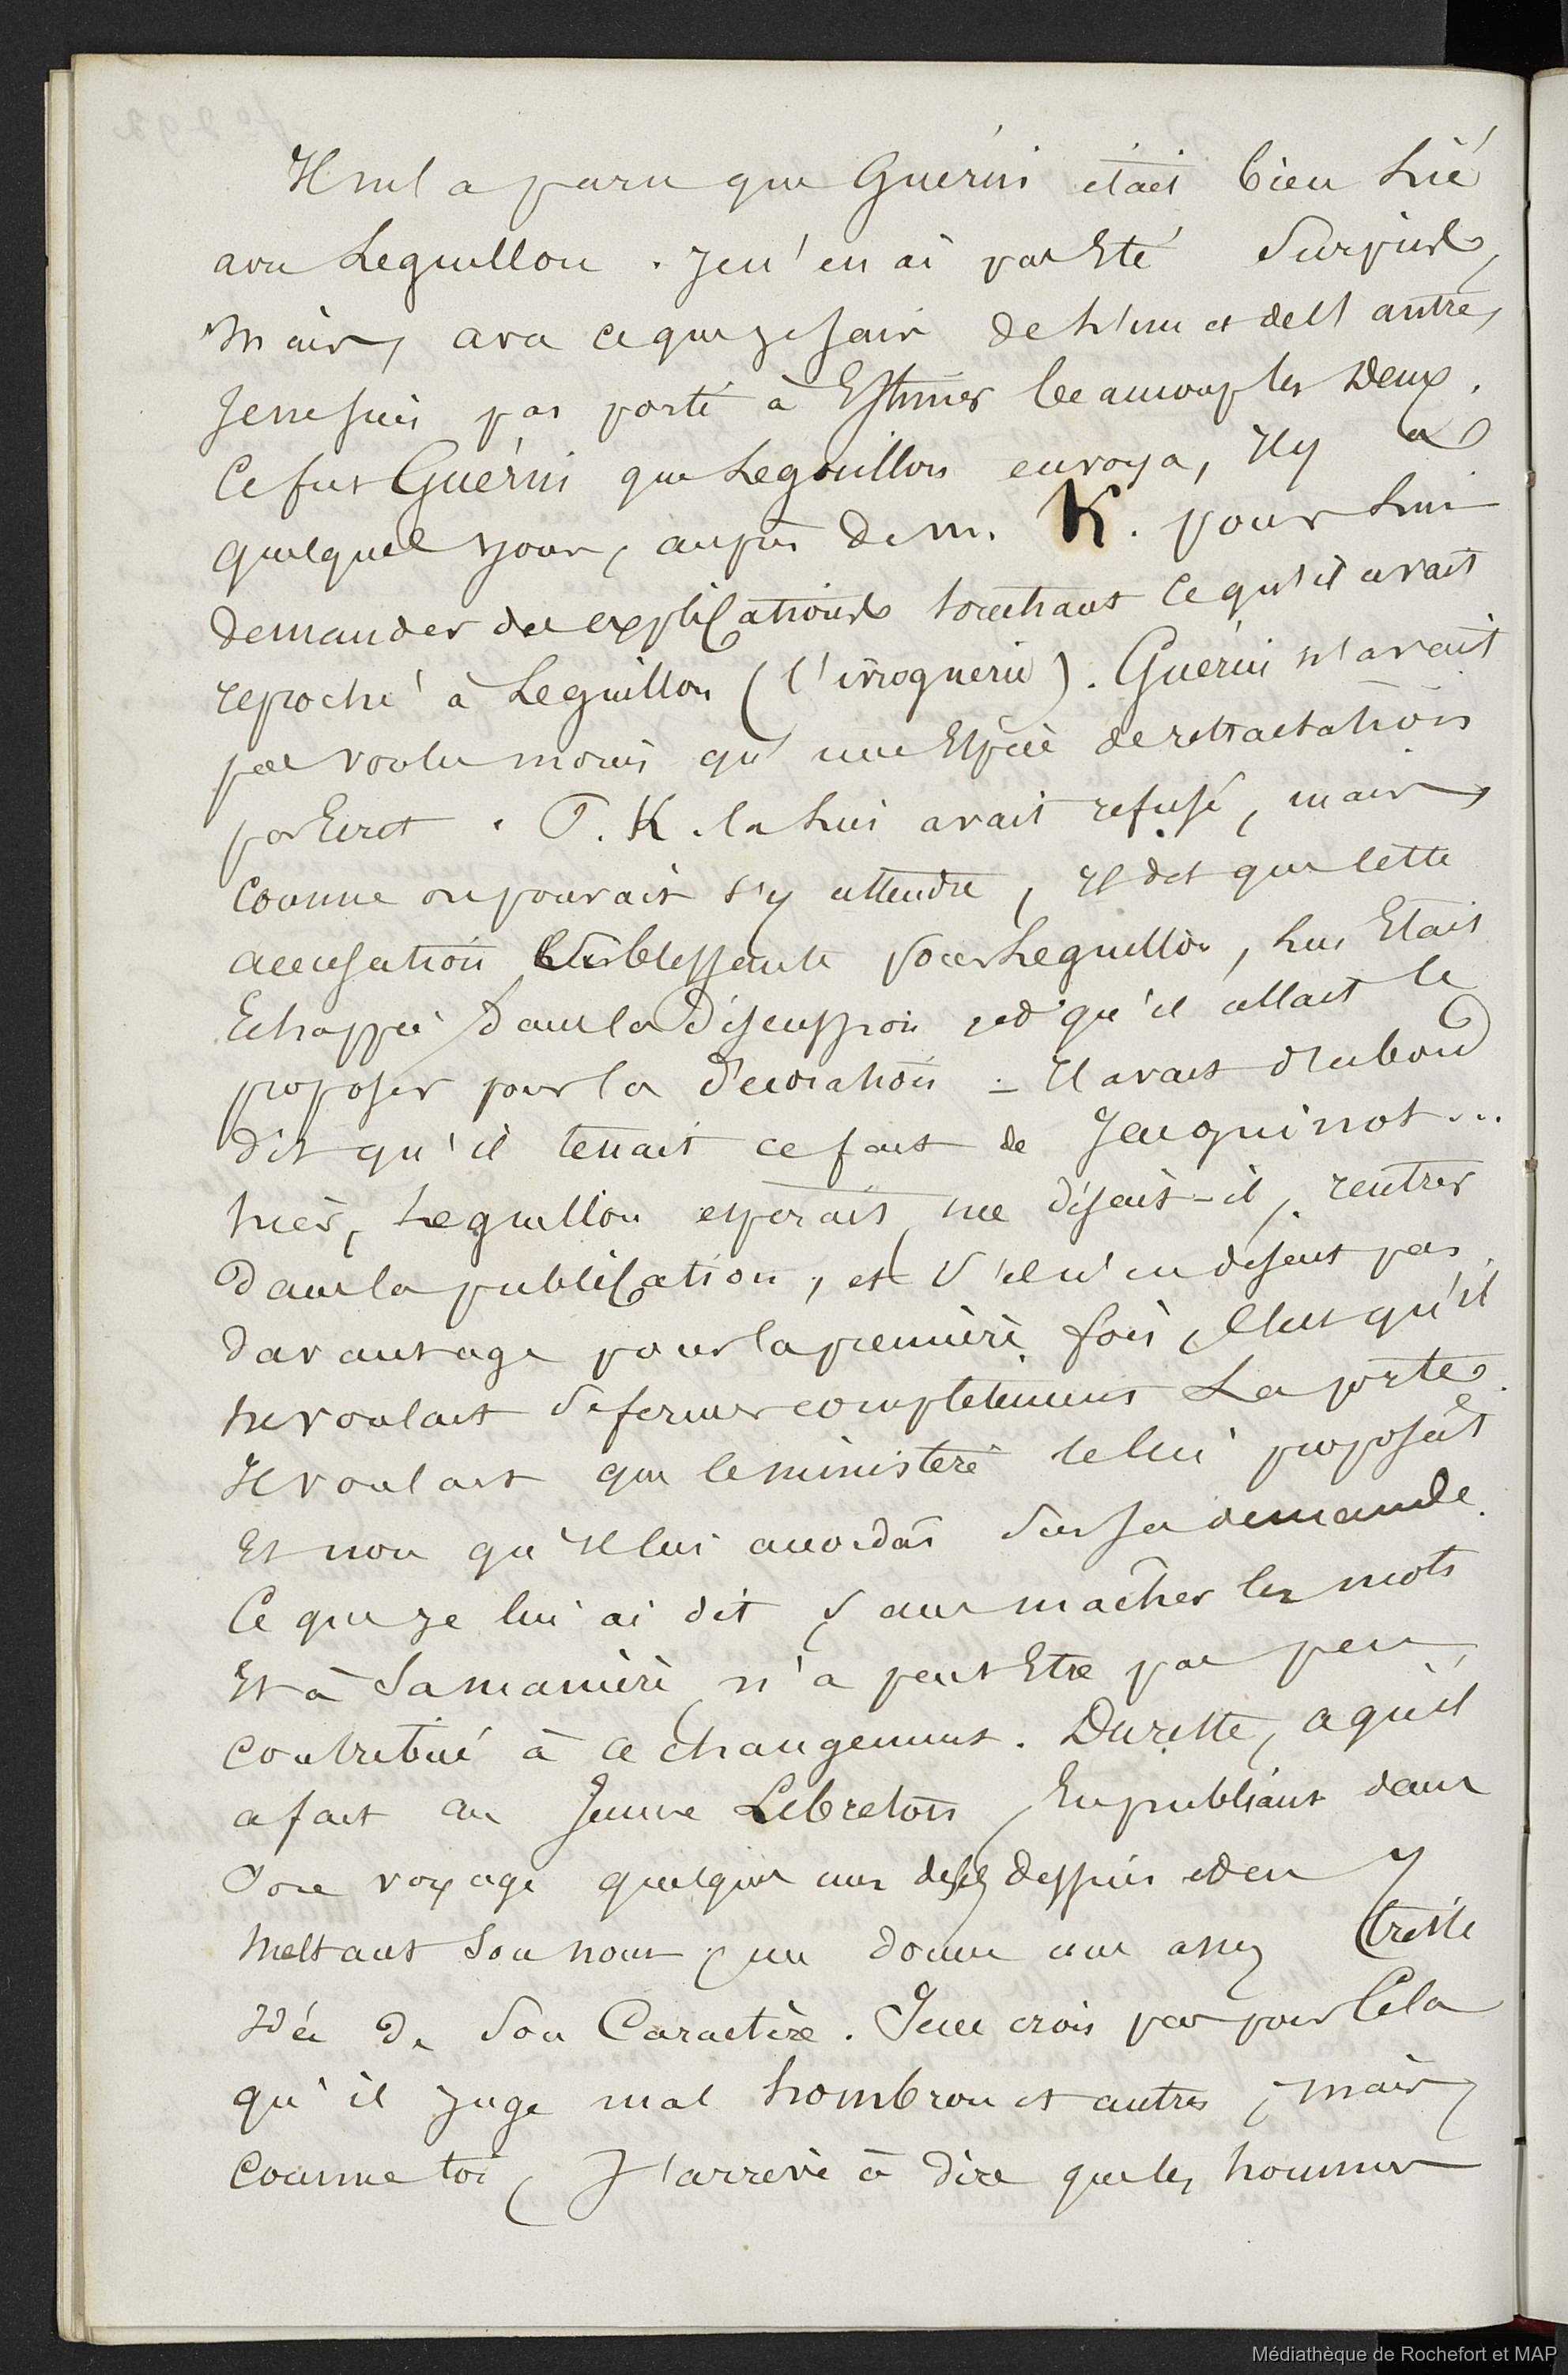 Il m'a paru que Guérin était bien lié
avec Leguillou. Je n'en ai pas Eté Surpris,
Mais, avec ce que je sais de L'un et de l'autre,
Je ne suis pas porté à Estimer beaucoup les Deux.
Ce fut Guérin que Legouillou envoya, Il y a
quelques jours, auprès de M. K. pour Lui
demander des explications touchant ce qu'il avait
reproché à Leguillou (l'ivrognerie). Guérin n'avait
pas voulu moins qu'une Espèce de rétractation
par Ecrit. P. K. la Lui avait refusé, mais,
Comme on pouvait s'y attendre, Il dit que cette
accusation blessante pour Leguillou, lui Etait
Echappée dans la Discussion et qu'il allait le
proposer pour la décoration - Il avait d'abord
dit qu'il tenait ce fait de Jacquinot...
hier, Leguillou espérait, me disait-il, rentrer
dans la publication, et S'il n'en disait pas
davantage pour la première fois, C'est qu'il
ne voulait Se fermer complètement La porte.
Il voulait que le ministère le lui proposât
Et non qu'Il lui accordât Sur Sa demande.
Ce que je lui ai dit, Sans mâcher les mots
Et à Sa manière, n'a peut Etre pas peu
contribué à ce changement. Du reste, ce qu'il
a fait au Jeune Lebreton, En publiant dans
Son voyage quelques uns de ses dessins et en y
Mettant Son nom, me donne une assez triste
Idée de Son Caractère. Je ne crois pas pour Cela
qu'il juge mal hombron et autres, mais,
Comme toi, J'arrive à dire que les hommes
Médiathèque de Rochefort et MAP